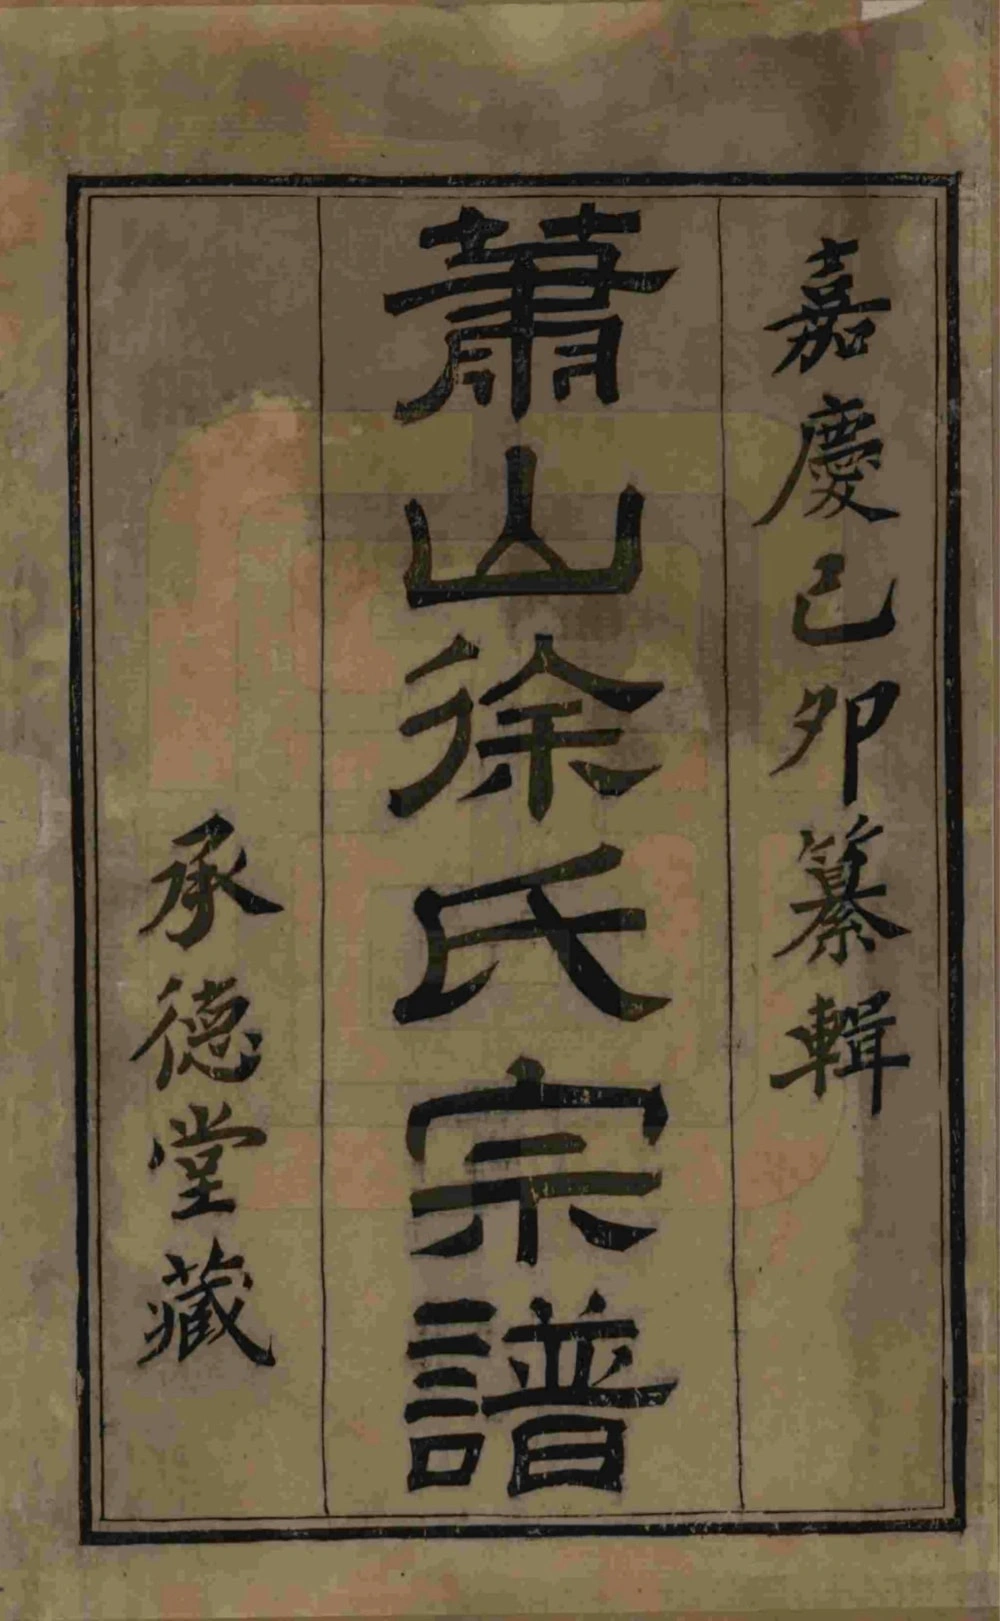 嘉慶己卯纂輯
蕭山徐氏宗譜
承德堂藏